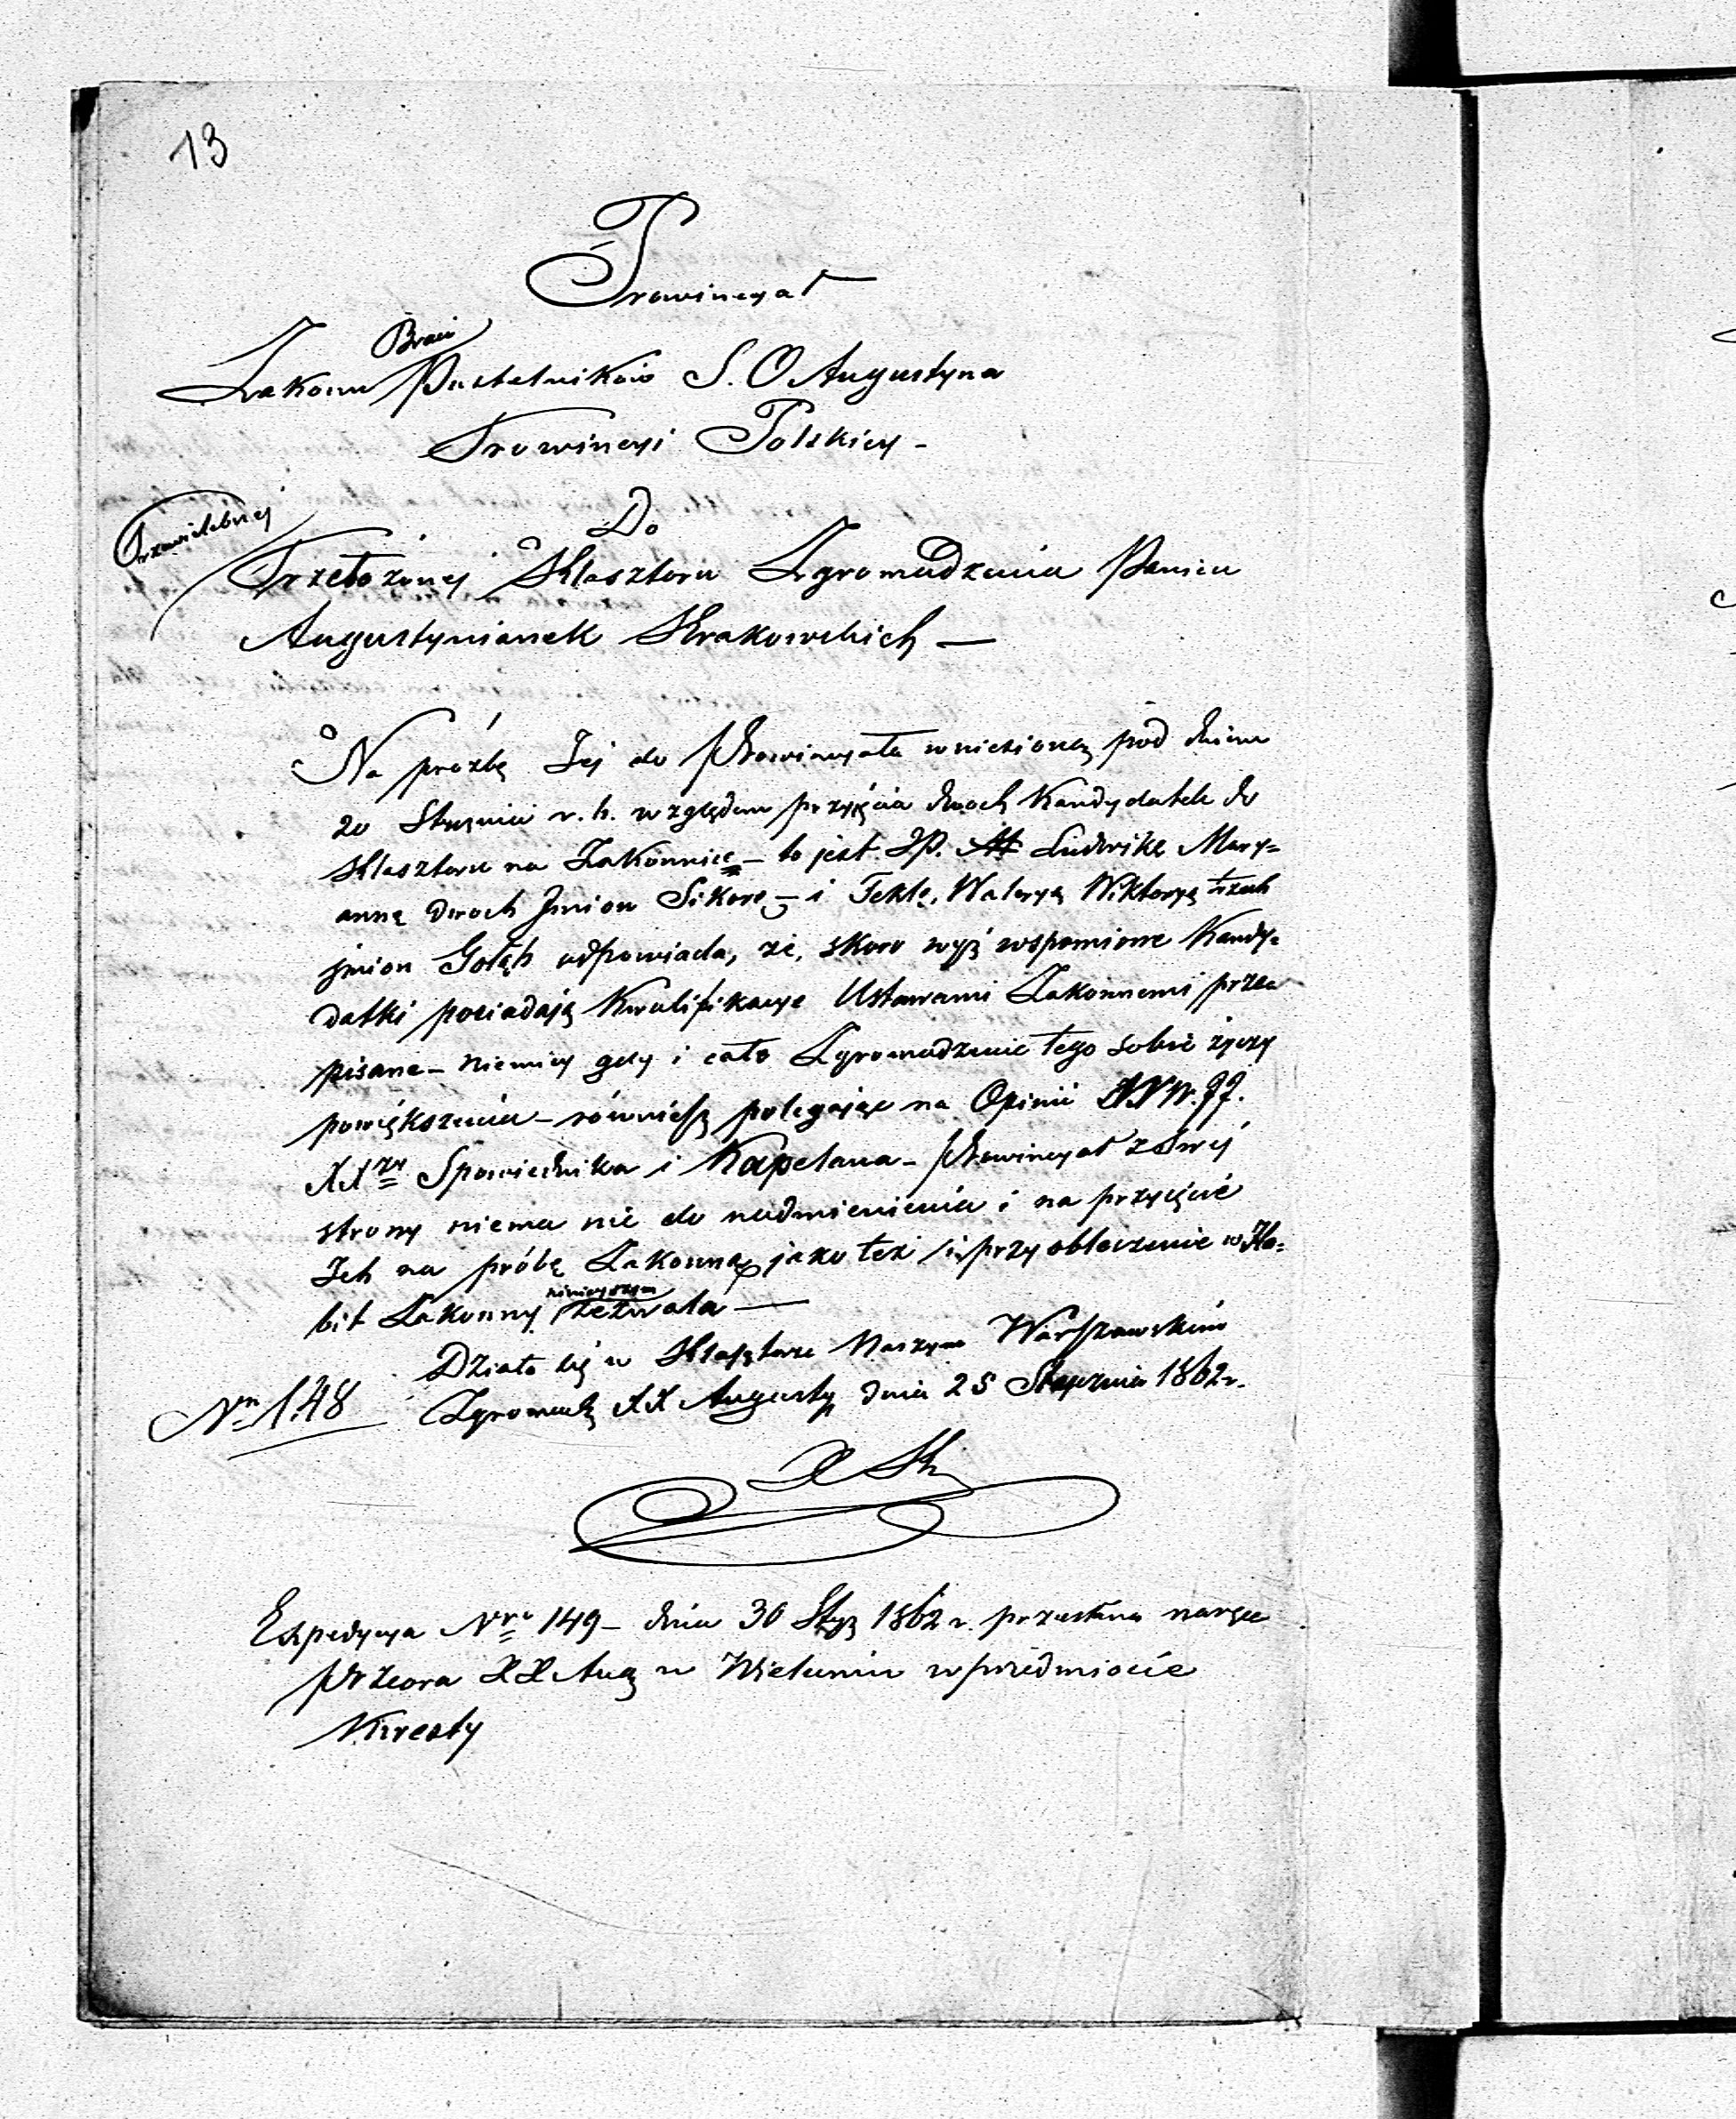 13
Prowincyał
Zakonu Braci Pustelników S. O Augustyna
Prowincyi Polskiey -
Do
Przewielebnej
Przełożonej Klasztoru Zgromadzenia Panien
Augustynianek Krakowskich —
Na prożbę Jej do Prowincyała wniesioną pod dniem
20 Stycznia r. b. względem przyjęcia dwoch Kandydatek do
Klasztoru na Zakonnice - to jest JP. Ludwikę Mary=
annę dwoch Jmion Sikorę - i Teklę, Waleryą Wiktoryą trzech
jmion Gołąb odpowiada, że, skoro wyż wspomione Kandy=
datki posiadają Kwalifikacye Ustawami Zakonnemi prze
pisane - niemniey gdy i całe Zgromadzenie tego sobie życzy
powiększenia - równiesz polegając na Opinii JJ.
XX Spowiednika i Kapelana - Prowincyał z swej
strony niema nic do nadmienienia i na przyjęcie
Ich na próbę Zakonną jako też i przyobleczenie w Ha=
bit Zakonny niniejszem zezwala —
Działo się w Klasztorze Naszym Warszawskim
Nr 148 Zgromadz XX Augusty dnia 25 Stycznia 1862 r.
Expedycya Nro 149 - dnia 30 Stycz 1862 r. przesłana naręce
Przeora XX Aug w Wieluniu w przedmiocie
Kwesty